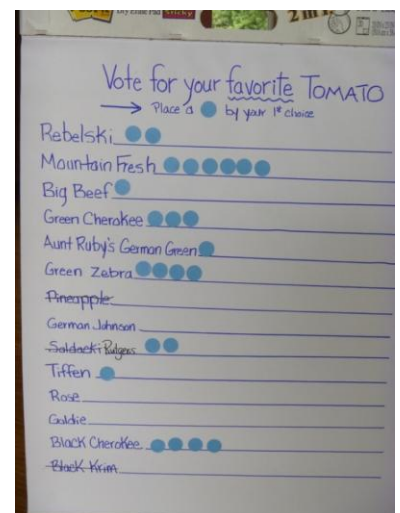 Dry Erase Pad Sticky
2 in 1
Vote for your favorite TOMATO
→ Place a by your 1st choice
Rebelski
Mountain Fresh
Big Beef
Green Cherokee
Aunt Ruby's German Green
Green Zebra
Pineapple
German Johnson
Soldacki Rutgers
Tiffen
Rose
Goldie
Black Cherokee
Black Krim